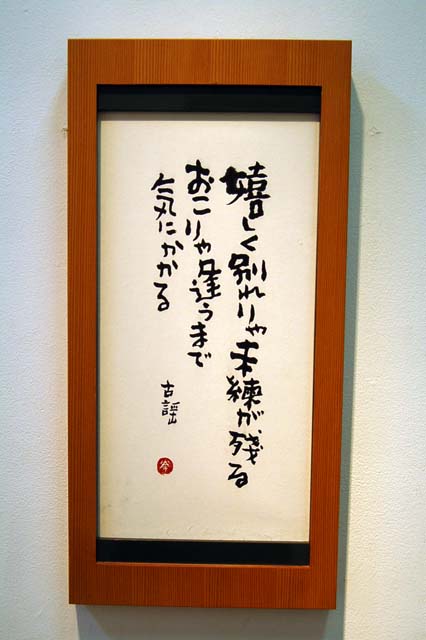 嬉しく別れりゃ未練が残る
おこりゃ逢うまで
気にかかる
古謡